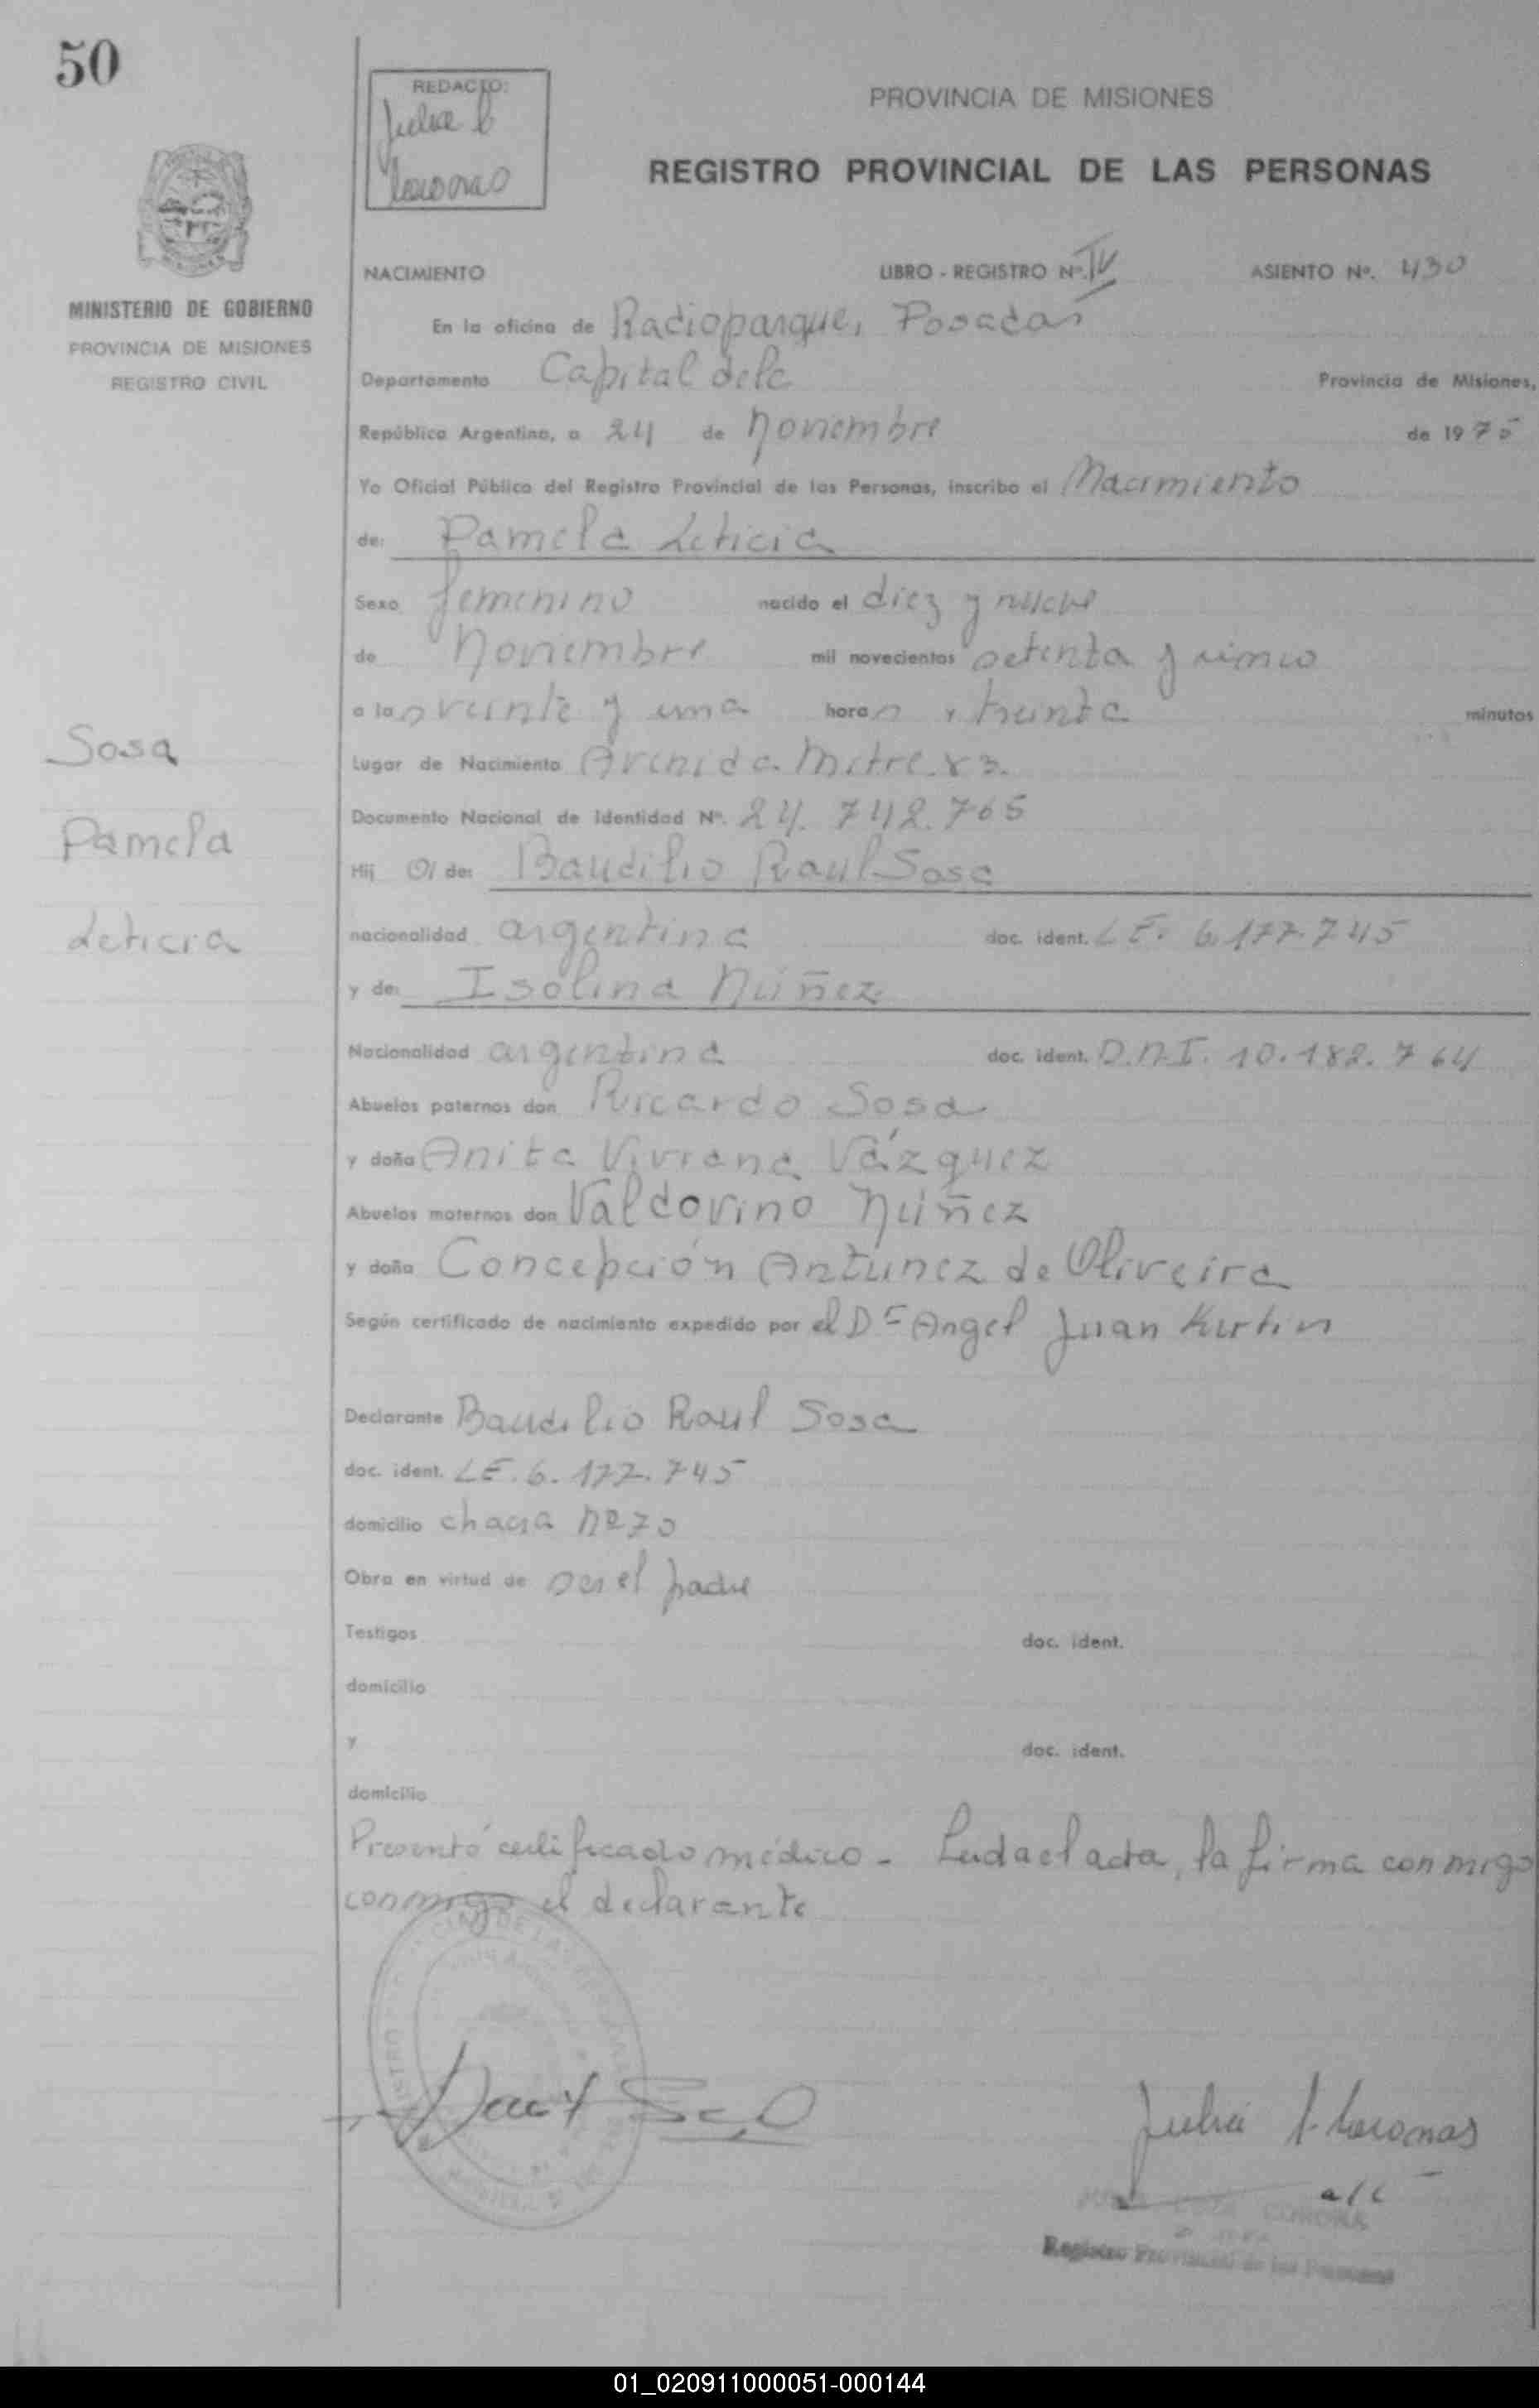 50
REDACTO:
PROVINCIA DE MISIONES
REGISTRO PROVINCIAL DE LAS PERSONAS
MINISTERIO DE GOBIERNO
PROVINCIA DE MISIONES
REGISTRO CIVIL
NACIMIENTO LIBRO - REGISTRO Nº. IV ASIENTO Nº. 430
En la oficina de Radioparque, Posadas
Departamento Capital de la Provincia de Misiones,
República Argentina, a 24 de noviembre de 1975
Yo Oficial Público del Registro Provincial de las Personas, inscribo el Nacimiento
de: Pamela Leticia
Sexo femenino nacido el diez y nueve
de noviembre mil novecientos setenta y cinco
a las veinte y una horas y treinta minutos
Sosa
Pamela
Leticia
Lugar de Nacimiento Avenida Mitre 83.
Documento Nacional de Identidad Nº. 24.742.765
Hij a de: Baudilio Raul Sosa
nacionalidad argentina doc. ident. LE. 6.177.745
y de: Isolina Núñez
Nacionalidad argentina doc. ident. D.N.I. 10.182.764
Abuelos paternos don Ricardo Sosa
y doña Anita Viviana Vázquez
Abuelos maternos don Valdovino Núñez
y doña Concepción Antunez de Oliveira
Según certificado de nacimiento expedido por el Dr Angel Juan
Declarante Baudilio Raul Sosa
doc. ident. LE. 6.177.745
domicilio chacra nº 70
Obra en virtud de ser el padre
Testigos doc. ident.
domicilio
y doc. ident.
domicilio
Presentó certificado médico - Leida el acta, la firma conmigo
conmigo el declarante
Registro Provincial de las Personas
01_020911000051-000144